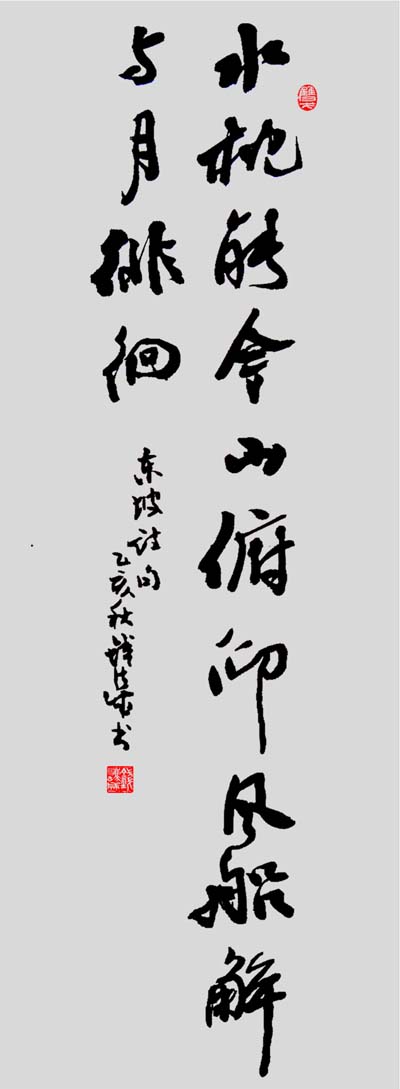 水枕能令山俯仰风船解
与月徘徊
东坡诗句
乙亥秋钱法成书